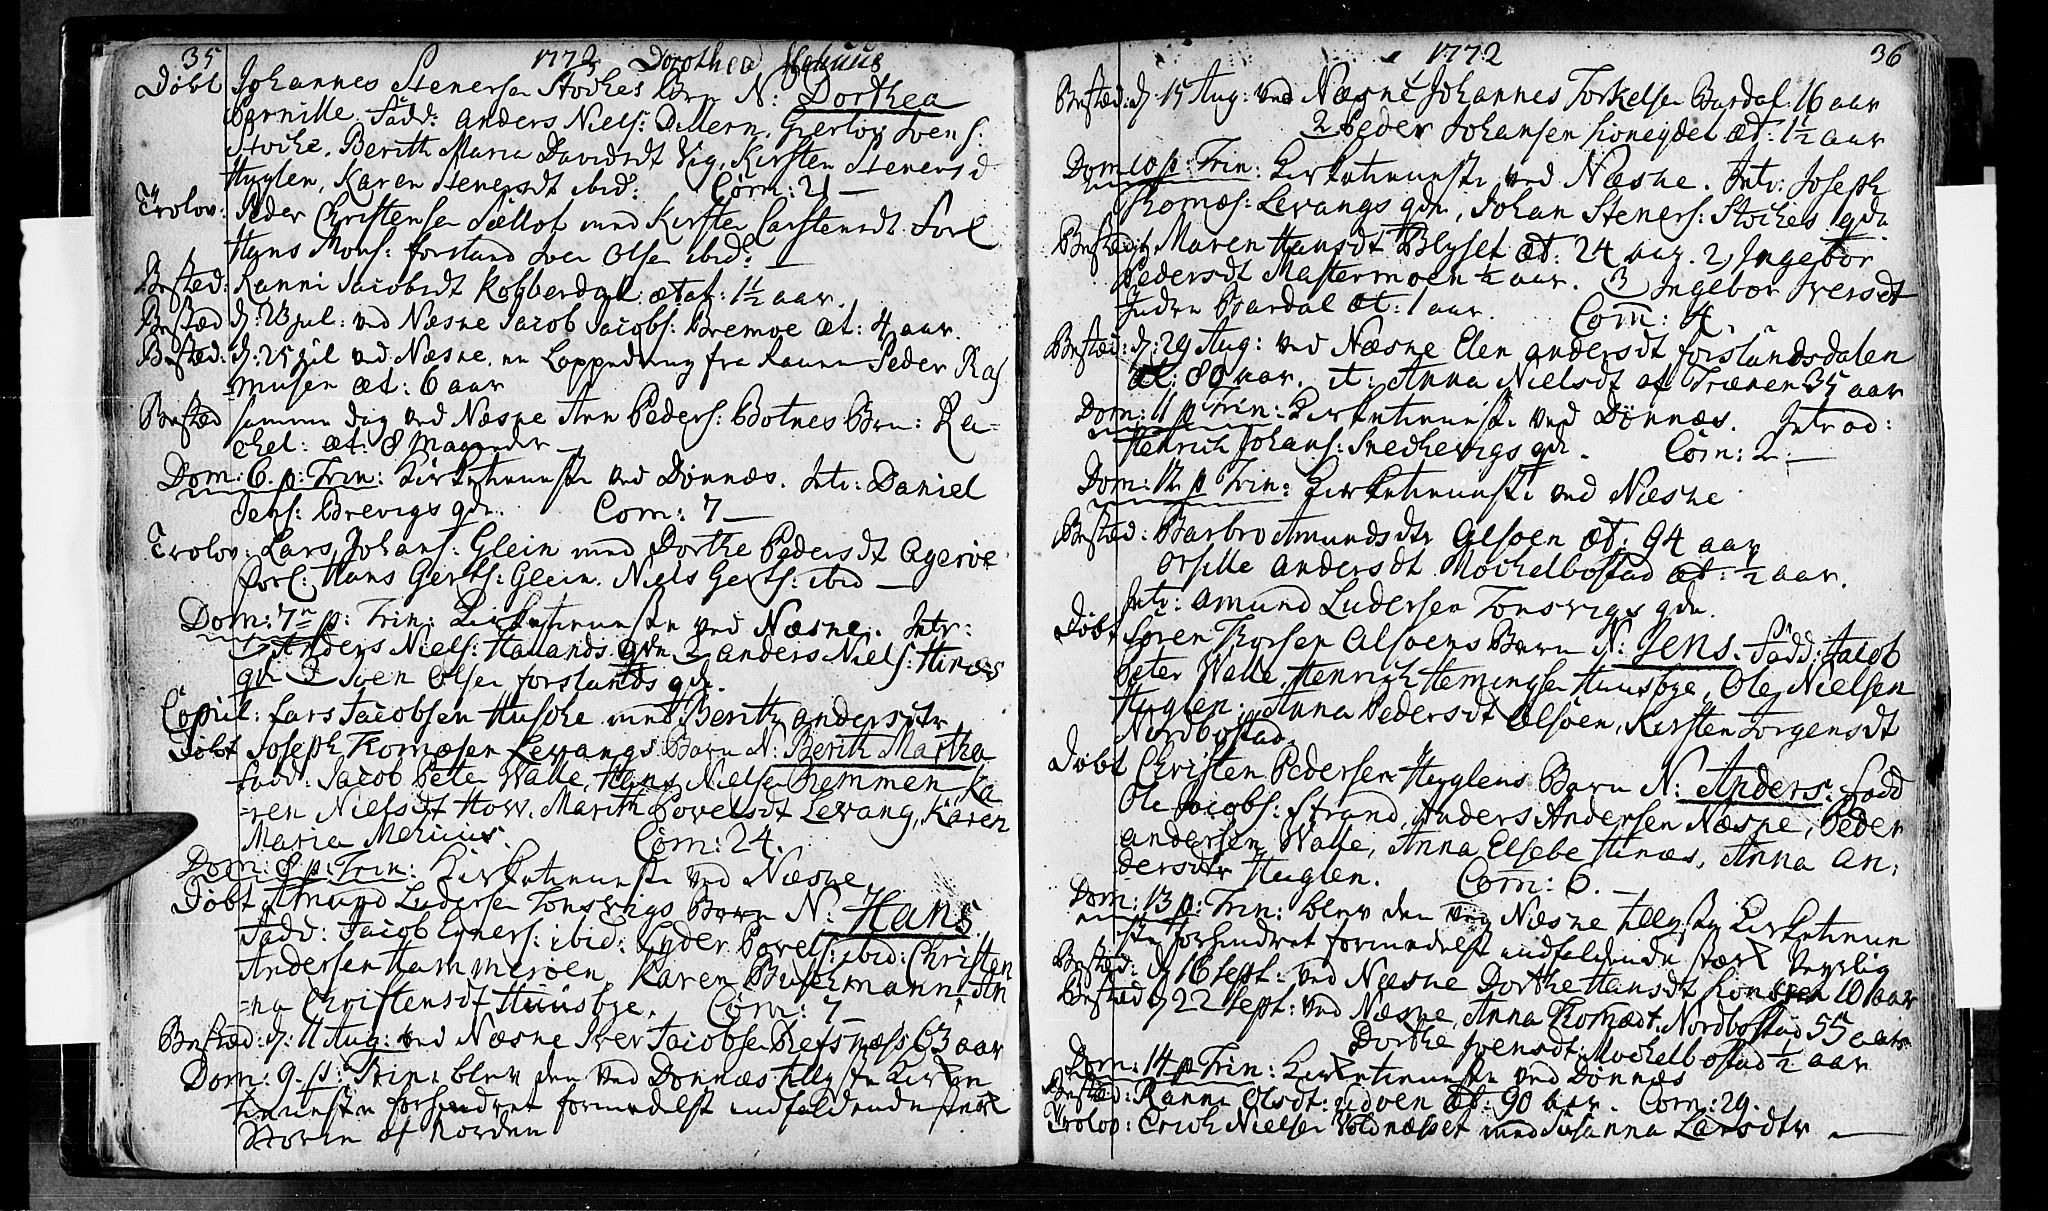 35 1772 Dorothea
Döbt Johannes Stenersen Stochis Barn N: Dorthea
Pernille. Fadd: Anders Niels: Dillern, Gierlov Ivens:
Stoche. Berith Maria Davidsdt Vig, Kirsten Stenersd
Huglen, Karen Stenersdt ibid: Com: 21 —
Trolov: Peder Christensen Siellot med Kirsten Carstensdt. Forl
Hans Mons: Forsland Iver Olsen ibid: —
Bested: Ranni Jacobsdt Kobberdal: ætat: 1½ aar.
Bested d: 23 Jul: ved Næsne Jacob Jacobs: Bremoe æt: 4 aar.
Bested: d: 25 Jul ved Næsne, en Loppedreng fra Ranen Peder Ras
musen æt: 6 aar
Bested samme dag ved Næsne Ann Peders: Botnes Barn: Ra=
chel: æt: 8 Maaneder —
Dom: 6. p: Trin: Kirketieneste ved Dönnæs. Intr: Daniel
Jens: Brevigs qde. Com: 7 —
Trolov: Lars Johans: Glein med Dorthe Pedersdt Ageröe
Forl: Hans Gerts: Glein. Niels Gerts: ibid —
Dom: 7de p: Trin: Kirketieneste ved Næsne. Intr:
1 Anders Niels: Hallands qde 2 Anders Niels: Hinæs
qde 3 Iven Olsen Forslands qde.
Copul: Lars Jacobsen Husche med Berith Andersdtr
Döbt Joseph Thomæsen Levangs Barn N: Berith Martha
Fadd: Jacob Peter Walle, Hans Nielsen Remmen, Ka
=ren Nielsdt How. Marith Povelsdt Levang, Karen
Maria Mehuus. Com: 24.
Dom: 8 p: Trin: Kirketieneste ved Næsne
Döbt Amund Ludersen Tonsvigs Barn N: Hans.
Fadd: Jacob Egners: ibid: Lyder Povels: ibid: Christen
Andersen Hammeröen Karen Buschmann, An
=na Christensdt Huusbye. Com: 7
Bested: d: 11 Aug: ved Næsne Iver Jacobsen Refsnæss 63 aar
Dom: 9. p: Trin: blev den ved Dönnæs tillyste Kirke
tieneste forhindret formedelst indfaldende stærk
Storm af Norden
1772 36
Bested: d: 15 Aug: ved Næsne 1 Johannes Torkelsen Bardal: 16 aar
2 Peder Johansen æt: 1½ aar
Dom 10 p: Trin: Kirketieneste ved Næsne. Intr: Joseph
Thomæs: Levangs qde, Johan Steners: Stochis qde.
Bested: 1 Maren Hansdt Blyset æt: 24 aar. 2, Ingebor
Pedersdt Mastermoen ½ aar. 3 Ingebor Iversdt
Indre Bardal æt: 1 aar. Com: 4.
Bested: d: 29 Aug: ved Næsne Elen Andersdt Forslandsdalen
æt: 80 aar. it: Anna Nielsdt af Trænen 35 aar
Dom: 11 p Trin: Kirketieneste ved Dönnæs. Introd:
Henrich Johans: qde. Com: 2 —
Dom: 12 p Trin: Kirketieneste ved Næsne
Bested: Barbro Amundsdtr Alsöen æt: 94 aar
Orsille Andersdt Mochelbostad æt: ½ aar.
Intr: Amund Ludersen Tonsvigs qde.
Döbt Sören Thorsen Alsöens Barn N: Jens. Fadd: Jacob
Peter Walle, Henrich Hemingsen Huusbye, Ole Nielsen
Huglen. Anna Pedersdt Alsöen, Kirsten Jorgensdt
Nordbostad.
Döbt Christen Pedersen Huglens Barn N: Anders. Fadd
Ole Jacobs: Strand, Anders Andersen Næsne, Peder
Andersen Walle, Anna Elsebe Hinæs, Anna An:
dersdtr Huglen. Com: 6. —
Dom: 13 p: Trin: blev den ved Næsne tillyste Kirketiene
ste forhindret formedelst indfaldende stærk Veyrlig
Bested: d 16 Sept: ved Næsne Dorthe Hansdt 10 aar
Bested d 22 Sept: ved Næsne, Anna Thomædt: Nordbostad 55 aar
Dorthe Ivensdt: Mochelbostad ½ aar
Dom: 14 p Trin: Kirketieneste ved Dönnæs
Bested: Ranni Olsdt: æt: 90 aar. Com: 29.
Trolov: Erich Nielsen med Susanna Larsdtr —